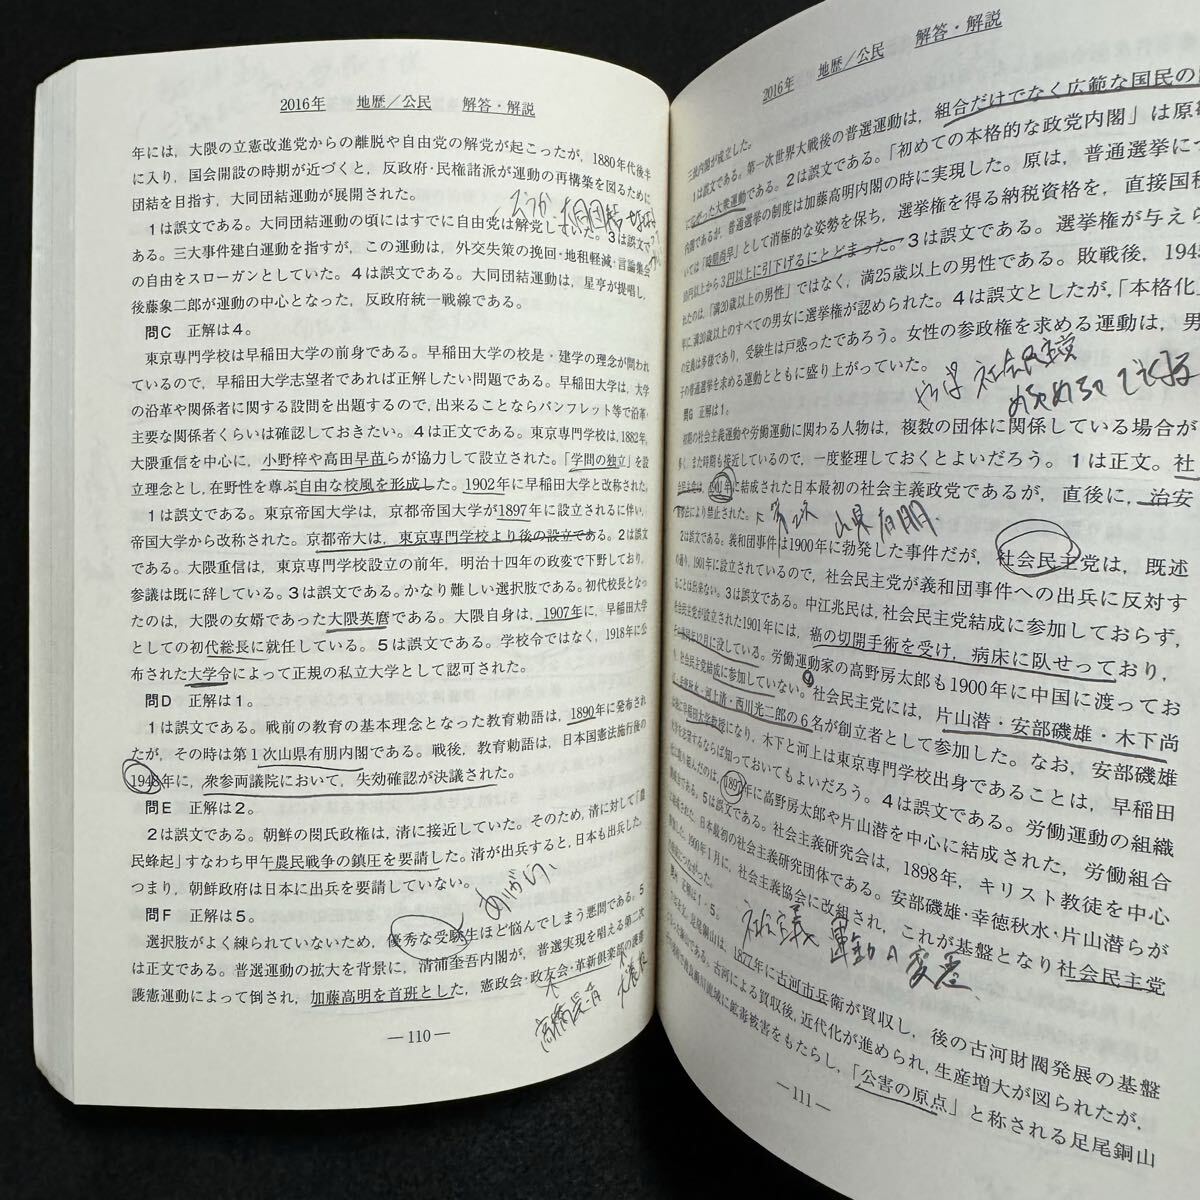 2016年 地歴／公民 解答・解説
年には，大隈の立憲改進党からの離脱や自由党の解党が起こったが，1880年代後半
に入り，国会開設の時期が近づくと，反政府・民権諸派が運動の再構築を図るために
団結を目指す，大同団結運動が展開された。
1は誤文である。大同団結運動の頃にはすでに自由党は解党し た。3は誤文で
ある。三大事件建白運動を指すが，この運動は，外交失策の挽回・地租軽減・言論集会
の自由をスローガンとしていた。4は誤文である。大同団結運動は，星亨が提唱し，
後藤象二郎が運動の中心となった，反政府統一戦線である。
問C 正解は4。
東京専門学校は早稲田大学の前身である。早稲田大学の校是・建学の理念が問われ
ているので，早稲田大学志望者であれば正解したい問題である。早稲田大学は，大学
の沿革や関係者に関する設問を出題するので，出来ることならパンフレット等で沿革・
主要な関係者くらいは確認しておきたい。4は正文である。東京専門学校は，1882年，
大隈重信を中心に，小野梓や高田早苗らが協力して設立された。「学問の独立」を設
立理念とし，在野性を尊ぶ自由な校風を形成した。1902年に早稲田大学と改称された。
1は誤文である。東京帝国大学は，京都帝国大学が1897年に設立されるに伴い，
帝国大学から改称された。京都帝大は，東京専門学校より後の設立である。2は誤文
である。大隈重信は，東京専門学校設立の前年，明治十四年の政変で下野しており，
参議は既に辞している。3は誤文である。かなり難しい選択肢である。初代校長となっ
たのは，大隈の女婿であった大隈英麿である。大隈自身は，1907年に，早稲田大学
としての初代総長に就任している。5は誤文である。学校令ではなく，1918年に公
布された大学令によって正規の私立大学として認可された。
問D 正解は1。
1は誤文である。戦前の教育の基本理念となった教育勅語は，1890年に発布され
たが，その時は第1次山県有朋内閣である。戦後，教育勅語は，日本国憲法施行後の
1948年に，衆参両議院において，失効確認が決議された。
問E 正解は2。
2は誤文である。朝鮮の閔氏政権は，清に接近していた。そのため，清に対して「農
民蜂起」すなわち甲午農民戦争の鎮圧を要請した。清が出兵すると，日本も出兵した。
つまり，朝鮮政府は日本に出兵を要請していない。
問F 正解は5。
選択肢がよく練られていないため，優秀な受験生ほど悩んでしまう悪問である。5
は正文である。普選運動の拡大を背景に，清浦奎吾内閣が，普選実現を唱える第二次
護憲運動によって倒され，加藤高明を首班とした，憲政会・政友会・革新倶楽部の護憲
高橋是清
犬養毅
―110―
2016年 地歴／公民 解答・解説
三派内閣が成立した。
1は誤文である。第一次世界大戦後の普選運動は，組合だけでなく広範な国民の
大衆運動である。2は誤文である。「初めての本格的な政党内閣」は原
内閣であるが，普通選挙の制度は加藤高明内閣の時に実現した。原は，普通選挙につ
いては「時期尚早」として消極的な姿勢を保ち，選挙権を得る納税資格を，直接国税
10円以上から3円以上に引下げるにとどまった。3は誤文である。選挙権が与えら
れたのは，「満20歳以上の男性」ではなく，満25歳以上の男性である。敗戦後，1945
年に，満20歳以上のすべての男女に選挙権が認められた。4は誤文としたが，「本格化」
の定義は多様であり，受験生は戸惑ったであろう。女性の参政権を求める運動は，男
子の普通選挙を求める運動とともに盛り上がっていた。
問G 正解は1。
初期の社会主義運動や労働運動に関わる人物は，複数の団体に関係している場合が
多く，また時期も接近しているので，一度整理しておくとよいだろう。1は正文。社
会民主党は，1901年に結成された日本最初の社会主義政党であるが，直後に，治安
により禁止された。
山県有朋
2は誤文である。義和団事件は1900年に勃発した事件だが，社会民主党は，既述
の通り，1901年に設立されているので，社会民主党が義和団事件への出兵に反対す
ることは出来ない。3は誤文である。中江兆民は，社会民主党結成に参加しておらず，
社会民主党が設立された1901年には，癌の切開手術を受け，病床に臥せっており，
12月に没している。労働運動家の高野房太郎も1900年に中国に渡ってお
り，社会民主党結成に参加していない。社会民主党には，片山潜・安部磯雄・木下尚
江・幸徳秋水・河上清・西川光二郎の6名が創立者として参加した。なお，安部磯雄
は後に早稲田大学教授になり，木下と河上は東京専門学校出身であることは，早稲田
大学を志望するならば知っておいてもよいだろう。4は誤文である。労働運動の組織
1897年に高野房太郎や片山潜を中心に結成された，労働組合
期成会である。5は誤文である。社会主義研究会は，1898年，キリスト教徒を中心
結成された，日本最初の社会主義研究団体である。安部磯雄・幸徳秋水・片山潜らが
1900年1月に，社会主義協会に改組され，これが基盤となり社会民主党
の結成につながった。
問H 正解は1・5。
足尾銅山は，1877年に古河市兵衛が買収し，後の古河財閥発展の基盤
古河による買収後，近代化が進められ，生産増大が図られたが，
流域に鉱毒被害をもたらし，「公害の原点」と称される足尾銅山
―111―